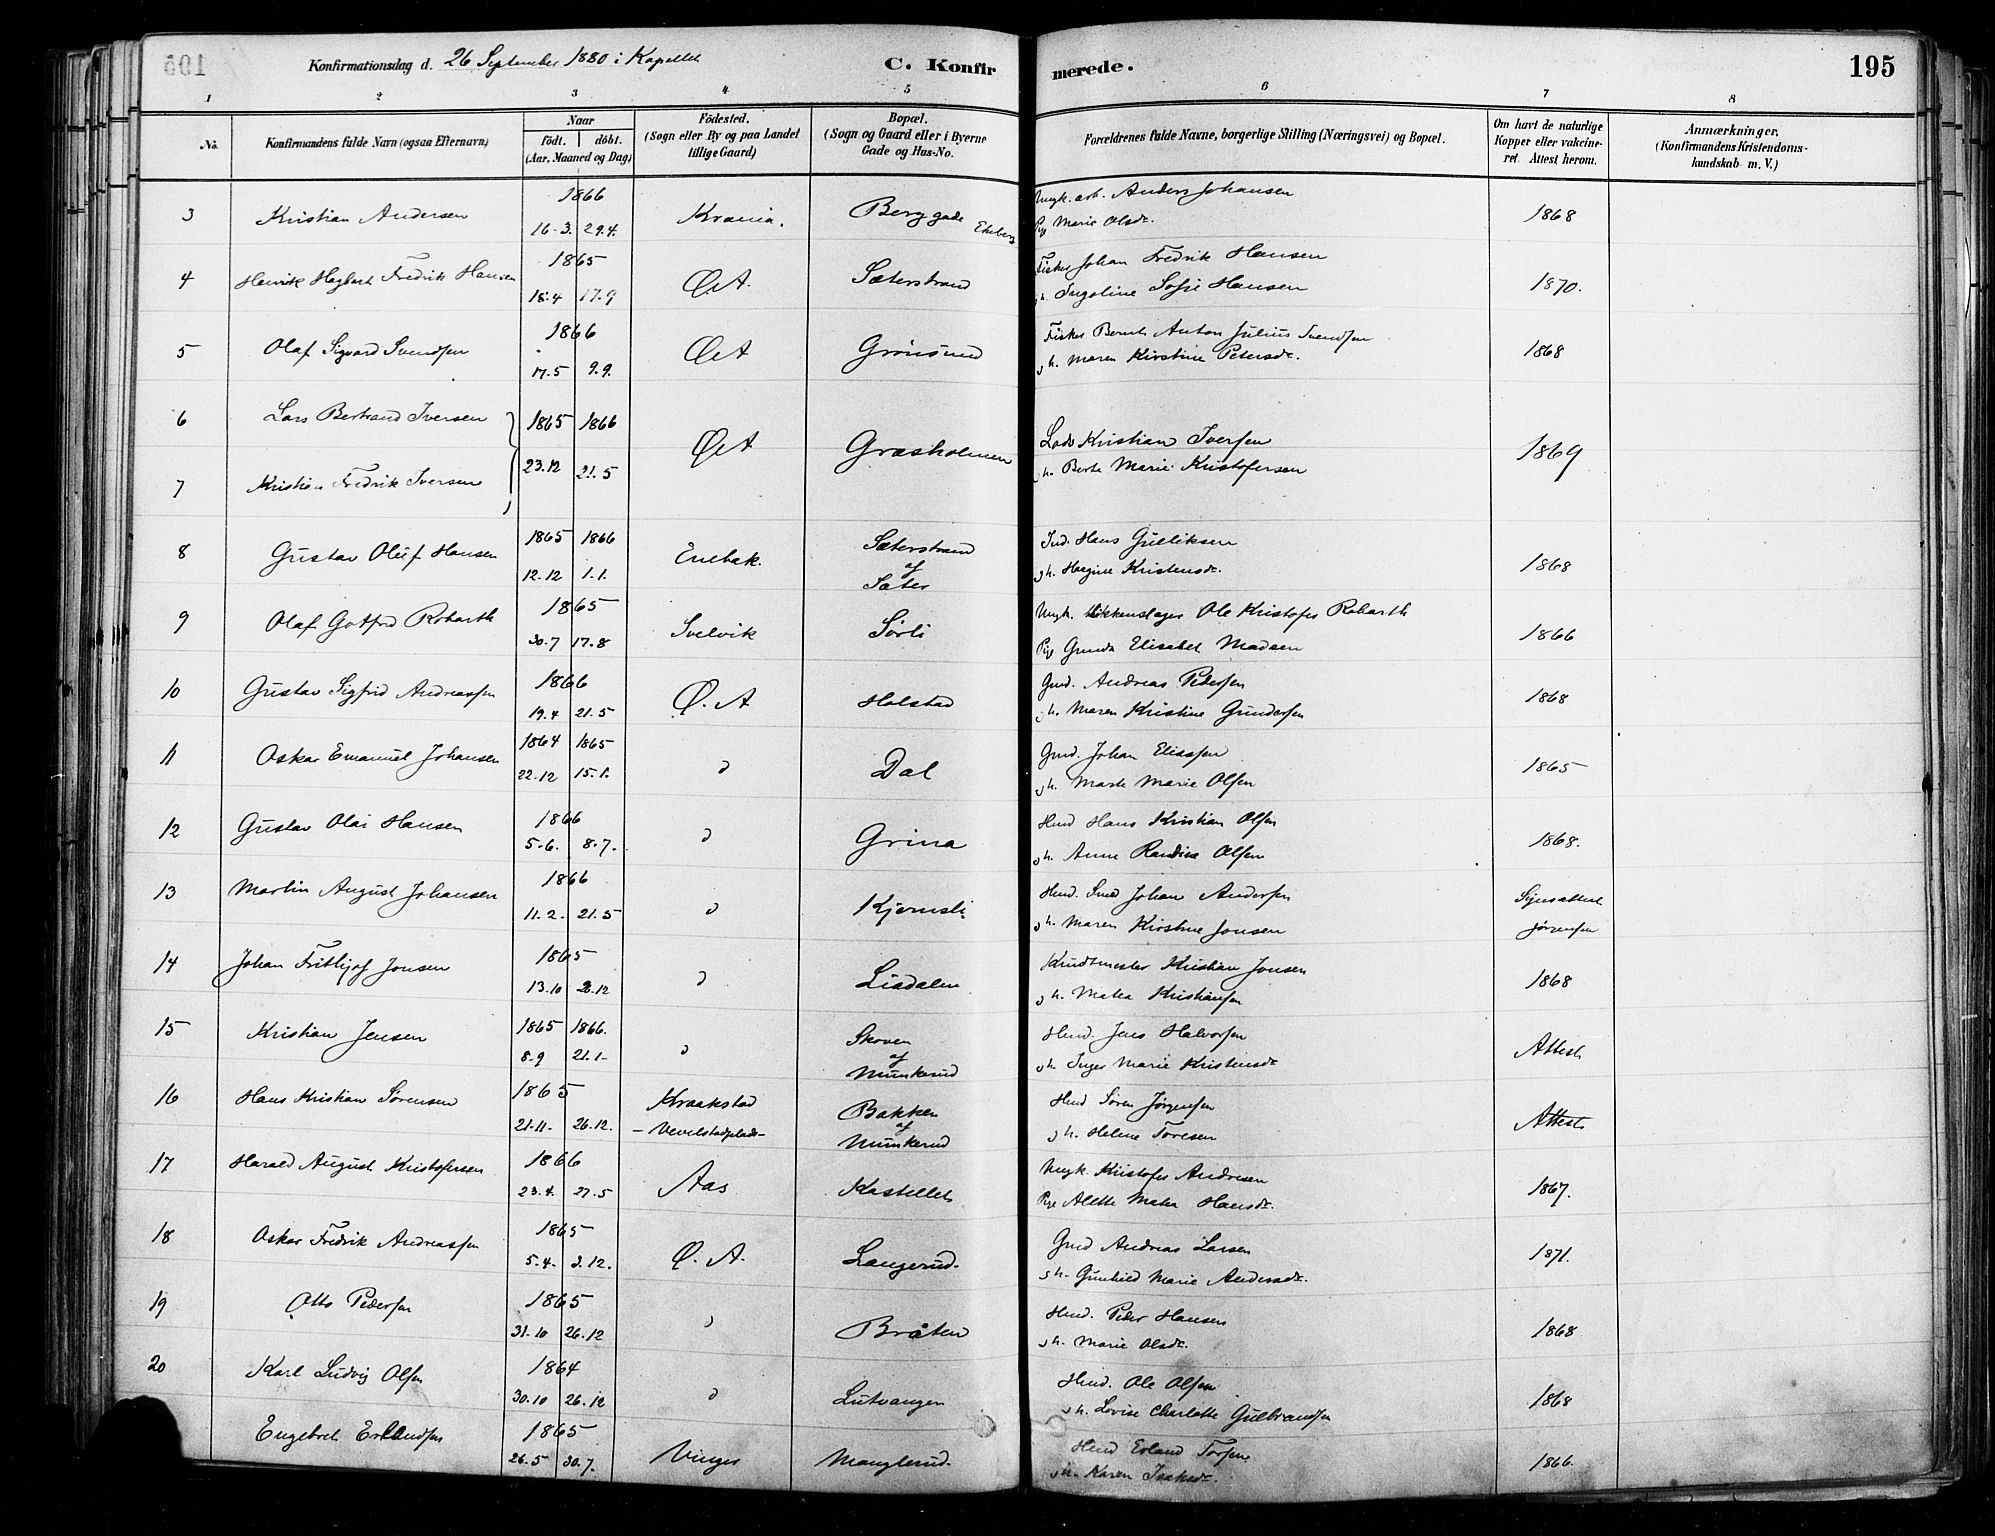 Konfirmationsdag d. 26 September 1880 i Kapellet
C. Konfirmerede.
195
1 2 3 4 5 6 7 8
No. Konfirmandens fulde Navn (ogsaa Efternavn) Naar født. døbt. (Aar, Maaned og Dag) Fødested. (Sogn eller By og paa Landet tillige Gaard) Bopæl. (Sogn og Gaard eller i Byerne Gade og Hus-No. Forældrenes fulde Navne, borgerlige Stilling (Næringsvei) og Bopæl. Om havt de naturlige Kopper eller vakcineret. Attest herom. Anmærkninger. (Konfirmandens Kristendomskundskab m. V.)
3 Kristian Andersen 1866 16-3. 29.4. Krania. Berg gade Ekeberg Ungk. arb. Anders Johansen
Pig Marie Olsdr. 1868
4 Henrik Hagbart Fredrik Hansen 1865 18.4 17.9 Ø.A. Sæterstrand Fisker Johan Fredrik Hansen
h. Ingoline Sofie Hansen 1870.
5 Olaf Sigvard Svendsen 1866 17.5 9.9. ØA Grønsund Fisker Bernt Anton Julius Svendsen
h. Maren Kirstine Petersdr. 1868
6 Lars Bertrand Iversen 1865 1866
7 Kristian Fredrik Iversen 23.12 21.5 ØA Græsholmen Lods Kristian Iversen
h. Berte Marie Kristofersen 1869
8 Gustav Oluf Hansen 1865 1866 12.12 1.1. Enebak. Sæterstrand af Sæter Ind. Hans Gulliksen
h. Hagine Kristensdr. 1868
9 Olaf Gotfred Robarth 1865 30.7 17.8 Svelvik Sørli Ungk. Blikkenslager Ole Kristofer Robarth
Pige Gunda Elisabet Madsen 1866
10 Gustav Sigfrid Andreassen 1866 19.4 21.5 Ø.A Holstad Gmd. Andreas Pedersen
h. Maren Kristine Gundersen 1868
11 Oskar Emanuel Johansen 1864 1865 22.12 15.1. d Dal Gmd. Johan Eliassen
h. Marte Marie Olsen 1865
12 Gustav Olai Hansen 1866 5.6. 8.7. d Grina Hmd Hans Kristian Olsen
h. Anne Randine Olsen 1868.
13 Martin August Johansen 1866 11.2. 21.5 d Kjernsli Hmd. Smed Johan Andersen
h. Maren Kirstine Jonsen
Jørgensen
14 Johan Frithjof Jonsen 1865 13.10 2.12 d Liadalen Kristian Jonsen
h. Matea Kristiansen 1868
15 Kristian Jensen 1865 1866. 8.9 21.1- d Skoven af Munkerud Hmd. Jens Halvorsen
h. Inger Marie Kristensdr Attest
16 Hans Kristian Sørensen 1865 21.11- 26.12. Kraakstad -Vevelstadplads- Bakken af Munkerud Hmd Søren Jørgensen
h. Helene Toresen Attest
17 Harald August Kristofersen 1866 23.4. 27.5 Aas Kastellet Ungk. Kristofer Andresen
Pige Alette Matea Hansdr. 1867.
18 Oskar Fredrik Andreassen 1865 5.4. 3.12. Ø.A. Langerud. Gmd Andreas Larsen
h. Gunhild Marie Andersdr. 1871.
19 Otto Pedersen 1865 31.10 26.12 d Bråten Hmd. Peder Hansen
h. Marie Olsdr. 1868
20 Karl Ludvig Olsen 1864 30.10 26.12 d Lutvangen Hmd. Ole Olsen
h. Lovise Charlotte Gulbrandsen 1868
Engebret Erlandsen 1865 26.5 30.7. Vinger Manglerud. Hmd Erland Torsen
h. Karen Isaksdr. 1866.